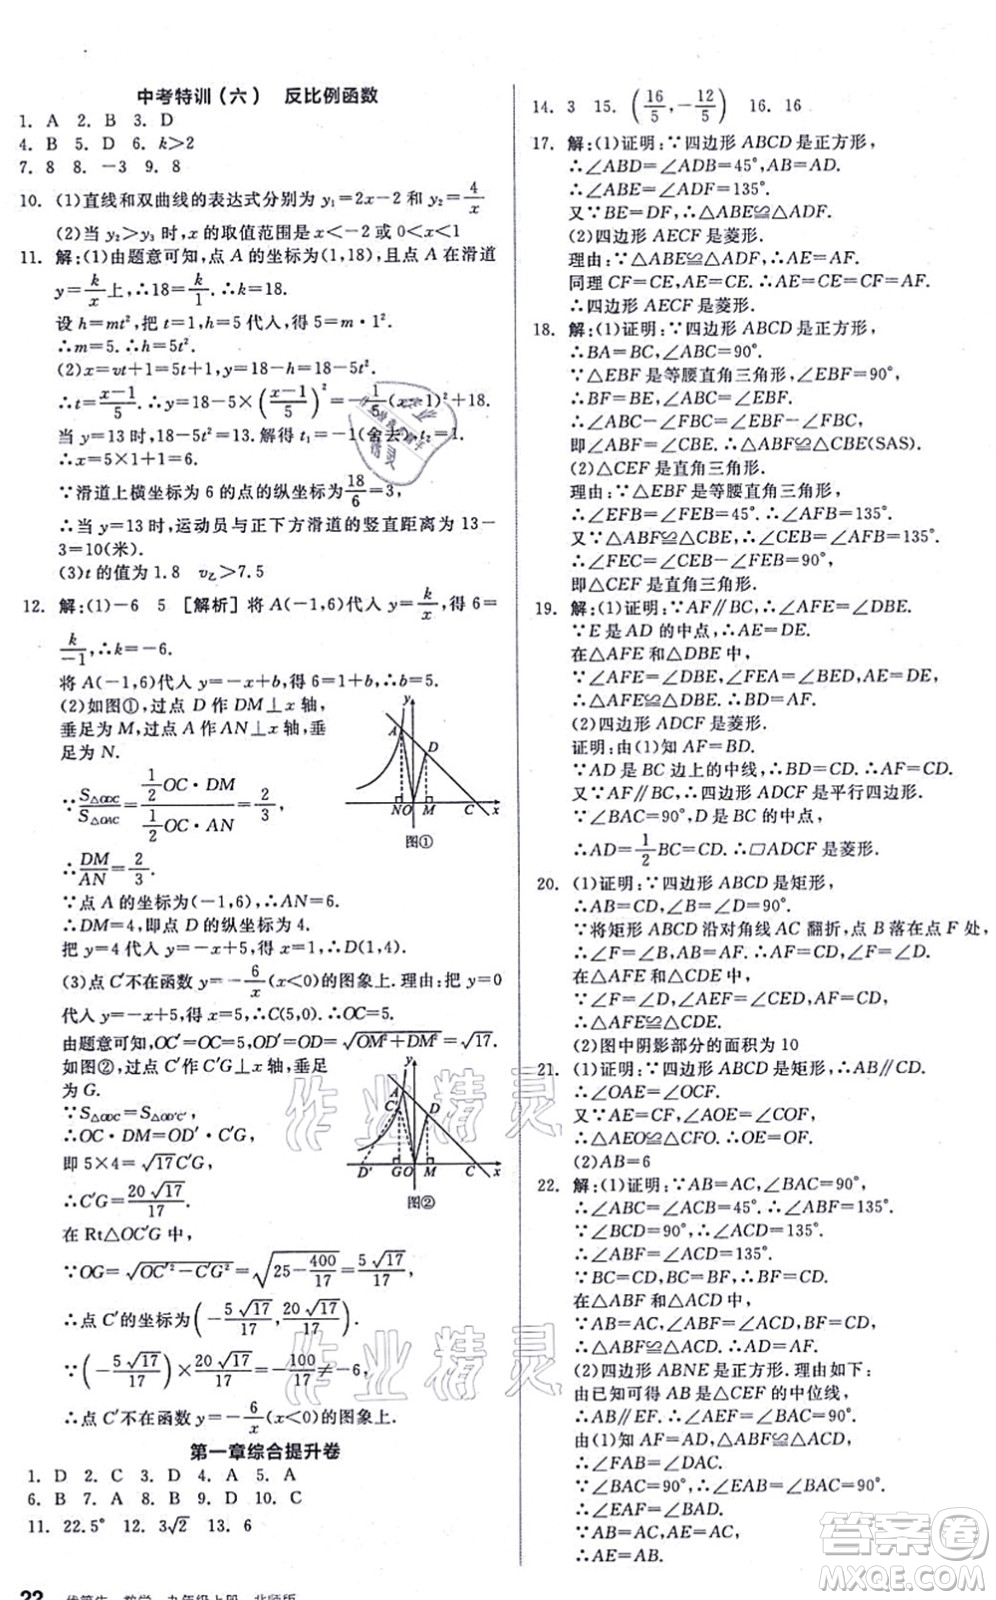 中考特训(六) 反比例函数
1. A 2. B 3. D
4. B 5. D 6. k>2
7. 8 8. -3 9. 8
10. (1)直线和双曲线的表达式分别为 y₁=2x-2 和 y₂=4/x
(2)当 y₂>y₃ 时,x 的取值范围是 x<-2 或 0<x<1
11. 解:(1)由题意可知,点 A 的坐标为(1,18),且点 A 在滑道
y=k/x 上,∴18=k/1.∴k=18.
设 h=mt²,把 t=1,h=5 代入,得 5=m·1².
∴m=5.∴h=5t².
(2)x=vt+1=5t+1,y=18-5t²,
∴t=(x-1)/5.∴y=18-5×((x-1)/5)²=-1/5(x-1)²+18.
当 y=13 时,18-5t²=13.解得 t₁=-1(舍去),t₂=1.
∴x=5×1+1=6.
∵滑道上横坐标为 6 的点的纵坐标为18/6=3,
∴当 y=13 时,运动员与正下方滑道的竖直距离为 13-
3=10(米).
(3)t 的值为 1.8 v乙>7.5
12. 解:(1)-6 5 [解析]将 A(-1,6)代入 y=k/x,得 6=
k/-1,∴k=-6.
将 A(-1,6)代入 y=-x+b,得 6=1+b,∴b=5.
(2)如图①,过点 D 作 DM⊥x 轴,
垂足为 M,过点 A 作 AN⊥x 轴,垂
足为 N.
∵S△ODC/S△OAC=(1/2 OC·DM)/(1/2 OC·AN)=2/3,
∴DM/AN=2/3.
y A D N O M C x
图①
∵点 A 的坐标为(-1,6),∴AN=6.
∴DM=4,即点 D 的纵坐标为 4.
把 y=4 代入 y=-x+5 中,得 x=1.∴D(1,4).
(3)点 C′不在函数 y=-6/x(x<0)的图象上.理由:把 y=0
代入 y=-x+5,得 x=5,∴C(5,0).∴OC=5.
由题意可知,OC′=OC=5,OD′=OD=√(OM²+DM²)=√17.
如图②,过点 C′作 C′G⊥x 轴,垂足
为 G.
∵S△ODC=S△OD′C′,
∴OC·DM=OD′·C′G,
即 5×4=√17C′G,
∴C′G=20√17/17.
y A C′ D D′ G O M C x
图②
在 Rt△OC′G 中,
∵OG=√(OC′²-C′G²)=√(25-400/17)=5√17/17,
∴点 C′的坐标为(-5√17/17,20√17/17).
∵(-5√17/17)×20√17/17=-100/17≠-6,
∴点 C′不在函数 y=-6/x(x<0)的图象上.
第一章综合提升卷
1. D 2. C 3. D 4. A 5. A
6. B 7. A 8. B 9. D 10. C
11. 22.5° 12. 3√2 13. 6
14. 3 15. (16/5,-12/5) 16. 16
17. 解:(1)证明:∵四边形 ABCD 是正方形,
∴∠ABD=∠ADB=45°,AB=AD.
∴∠ABE=∠ADF=135°.
又∵BE=DF,∴△ABE≌△ADF.
(2)四边形 AECF 是菱形.
理由:∵△ABE≌△ADF,∴AE=AF.
同理 CF=CE,AE=CE.∴AE=CE=CF=AF.
∴四边形 AECF 是菱形.
18. 解:(1)证明:∵四边形 ABCD 是正方形,
∴BA=BC,∠ABC=90°.
∵△EBF 是等腰直角三角形,∠EBF=90°,
∴BF=BE,∠ABC=∠EBF.
∴∠ABC-∠FBC=∠EBF-∠FBC,
即∠ABF=∠CBE.∴△ABF≌△CBE(SAS).
(2)△CEF 是直角三角形.
理由:∵△EBF 是等腰直角三角形,
∴∠EFB=∠FEB=45°.∴∠AFB=135°.
又∵△ABF≌△CBE,∴∠CEB=∠AFB=135°.
∴∠FEC=∠CEB-∠FEB=90°.
即△CEF 是直角三角形.
19. 解:(1)证明:∵AF∥BC,∴∠AFE=∠DBE.
∵E 是 AD 的中点,∴AE=DE.
在△AFE 和△DBE 中,
∵∠AFE=∠DBE,∠FEA=∠BED,AE=DE,
∴△AFE≌△DBE.∴BD=AF.
(2)四边形 ADCF 是菱形.
证明:由(1)知 AF=BD.
∵AD 是 BC 边上的中线,∴BD=DC.∴AF=DC.
又∵AF∥BC,∴四边形 ADCF 是平行四边形.
∵∠BAC=90°,AD 是 BC 边上的中线,
∴AD=1/2BC=CD.∴▱ADCF 是菱形.
20. (1)证明:∵四边形 ABCD 是矩形,
∴AB=CD,∠B=∠D=90°.
∵将矩形 ABCD 沿对角线 AC 翻折,点 B 落在点 F 处,
∴∠F=∠B=∠D,AB=AF.∴AF=CD.
在△AFE 和△CDE 中,
∵∠F=∠D,∠AEF=∠CED,AF=CD,
∴△AFE≌△CDE.
(2)图中阴影部分的面积为 10
21. (1)证明:∵四边形 ABCD 是矩形,∴AB∥CD.
∴∠OAE=∠OCF.
又∵AE=CF,∠AOE=∠COF,
∴△AEO≌△CFO.∴OE=OF.
(2)AB=6
22. 解:(1)证明:∵AB=AC,∠BAC=90°,
∴∠ABC=∠ACB=45°.∴∠ABF=135°.
∵∠BCD=90°,∴∠ACD=135°.
∴∠ABF=∠ACD=135°.
∵BC=CD,BC=BF,∴BF=CD.
在△ABF 和△ACD 中,
∵AB=AC,∠ABF=∠ACD,BF=CD,
∴△ABF≌△ACD.∴AF=AD.
(2)四边形 ABNE 是正方形.理由如下:
由已知可得 AB 是△CEF 的中位线,
∴AB∥EF.∴∠AEF=∠BAC=90°.
由(1)知 AF=AD,△ABF≌△ADC,
∴∠FAB=∠DAC.
∵∠BAC=90°,∴∠EAB=90°.
∴∠EAF=∠BAD.
∵AB=AC,AE=AC,
∴AE=AB.
作业精灵
作业精灵
答案卷
22 优等生 数学 九年级上册 北师版